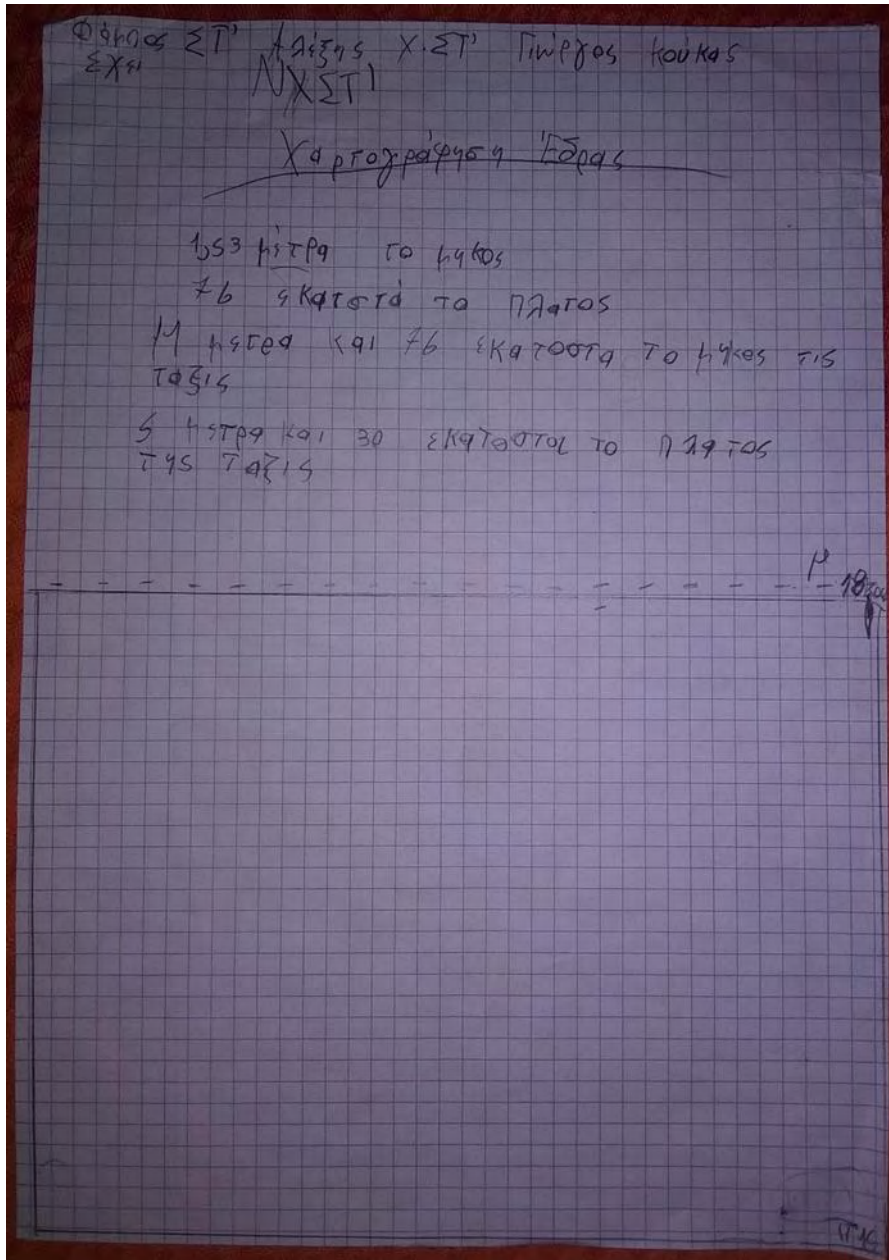 ΣΤ' Αλέξης Χ. ΣΤ' Γιώργος Κούκας
ΝΧΣΤ'
Χαρτογράφηση Έδρας
1,53 μέτρα το μηκος
76 εκατοστά το πλατος
μετρα και 76 εκατοστα το μηκος τις
ταξις
5 μετρα και 30 εκατοστα το πλατος
της ταξις
μ
18